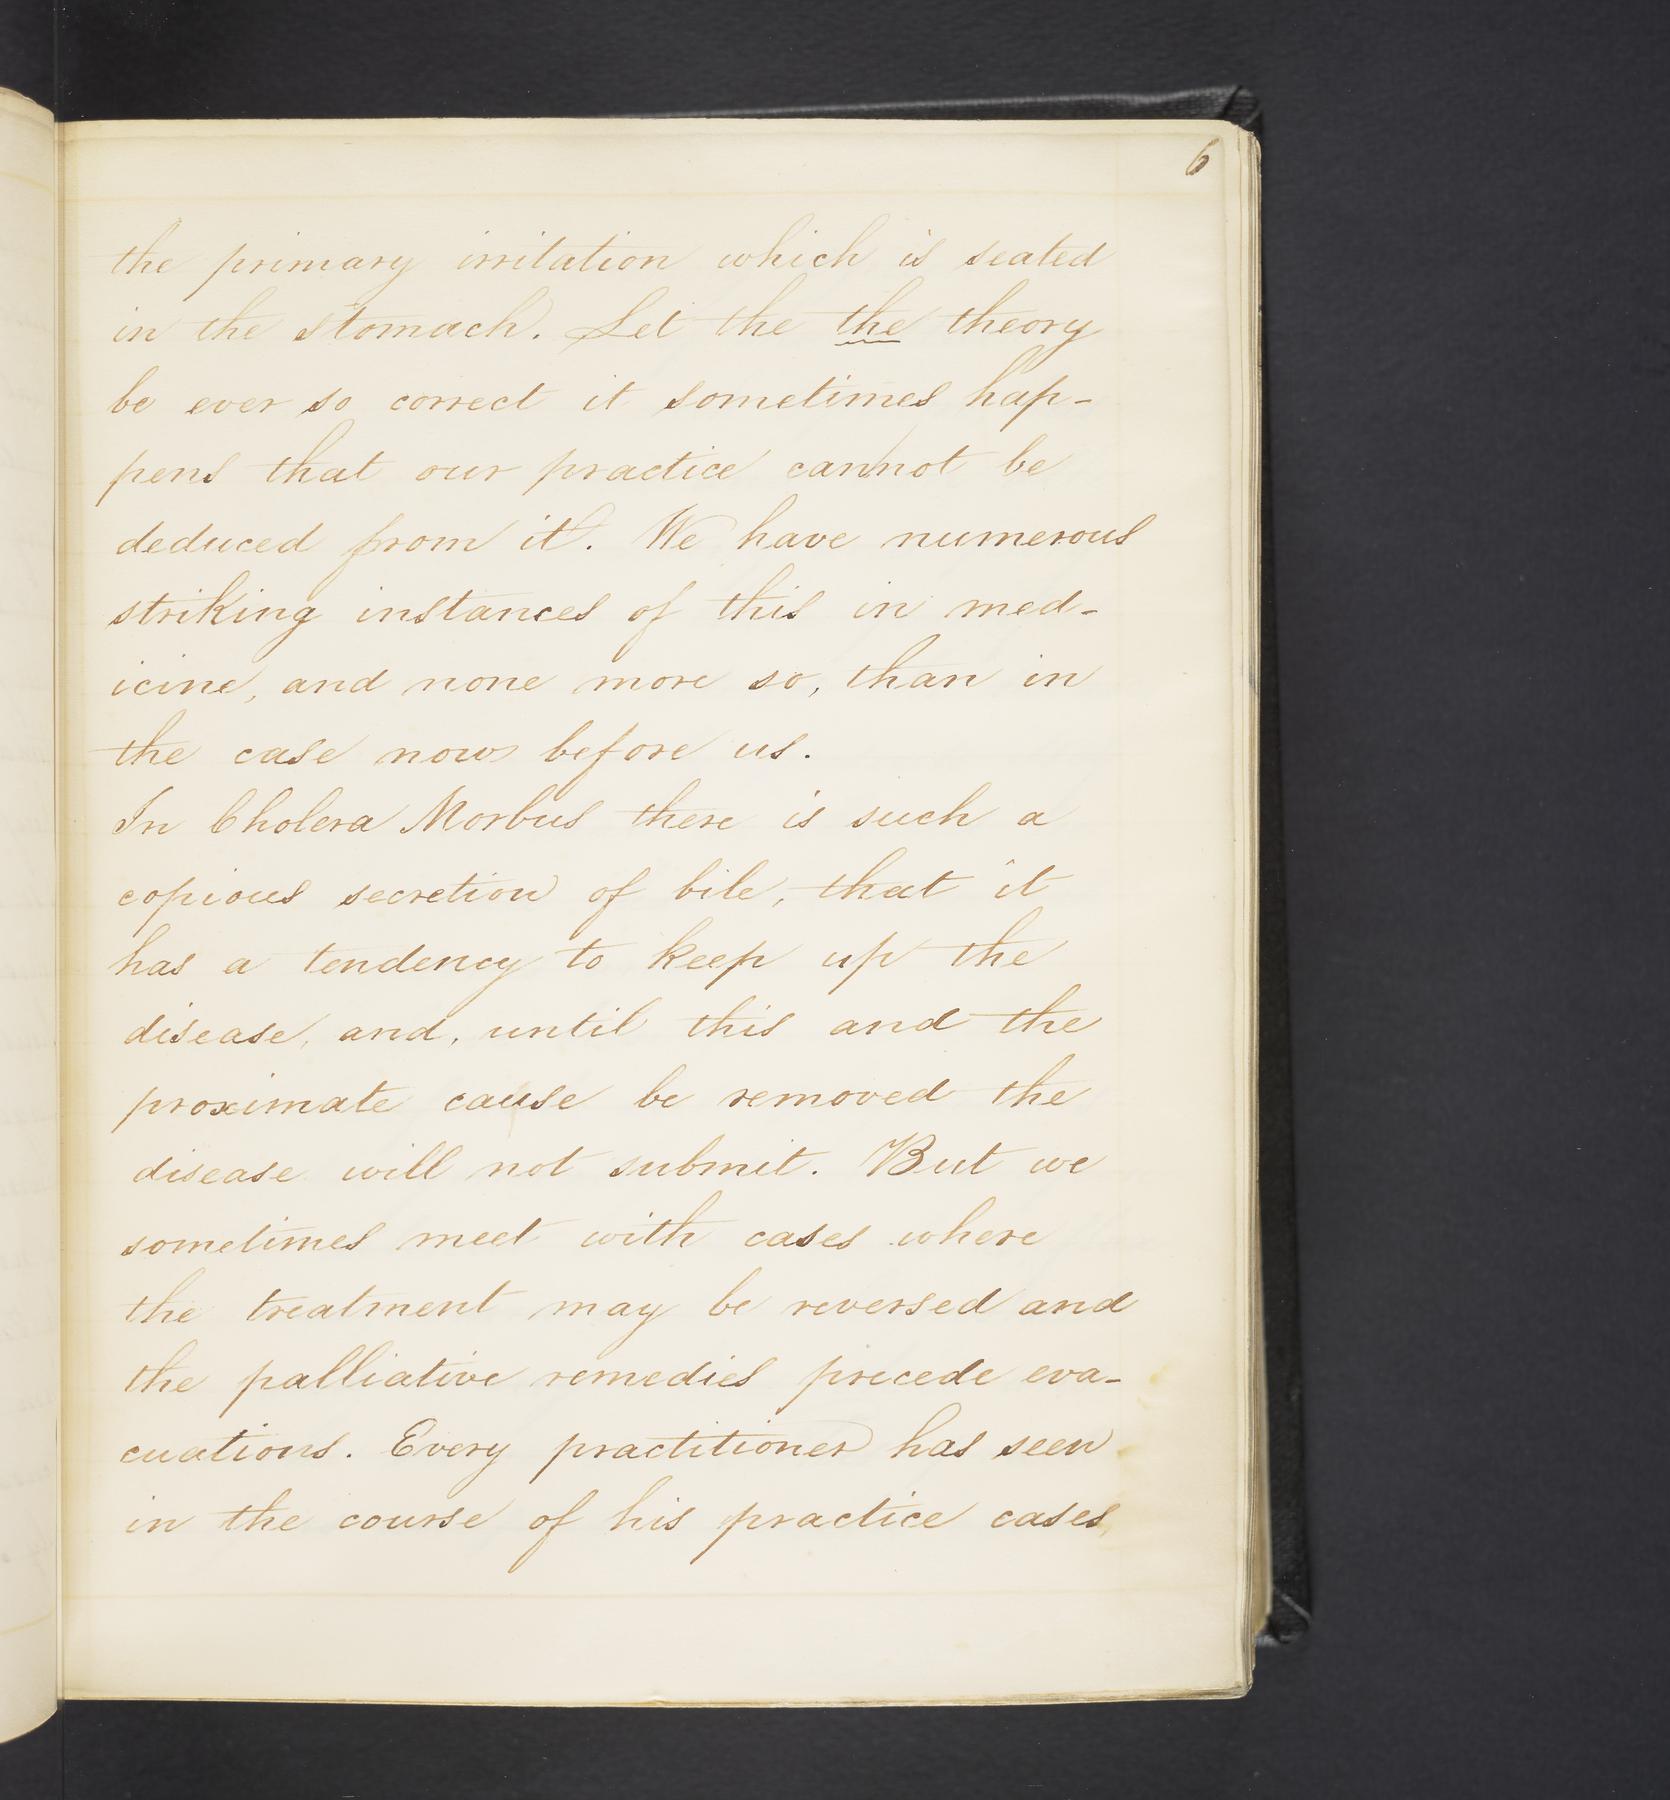 6
the primary irritation which is seated
in the stomach. Let the the theory
be ever so correct it sometimes hap-
pens that our practice cannot be
deduced from it. We have numerous
striking instances of this in med-
icine, and none more so, than in
the case now before us.
In Cholera Morbus there is such a
copious secretion of bile, that it
has a tendency to keep up the
disease, and, until this and the
proximate cause be removed the
disease will not submit. But we
sometimes meet with cases where
the treatment may be reversed and
the palliative remedies precede eva-
cuations. Every practitioner has seen
in the course of his practice cases